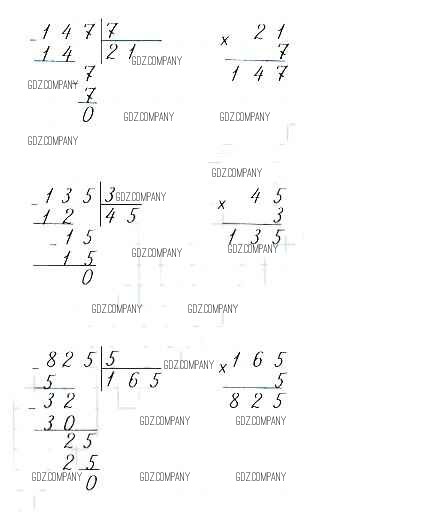 147 7 21
14 21 7
GDZ.COMPANY
7 147
GDZ.COMPANY
7
0 GDZ.COMPANY GDZ.COMPANY
GDZ.COMPANY
GDZ.COMPANY
135 3 GDZ.COMPANY × 45
- 12 45 3
- 15 135
GDZ.COMPANY GDZ.COMPANY
15
0
GDZ.COMPANY GDZ.COMPANY
- 825 5 GDZ.COMPANY × 165
5 165 5
- 32 825
30 GDZ.COMPANY GDZ.COMPANY
25
25
GDZ.COMPANY GDZ.COMPANY GDZ.COMPANY
0